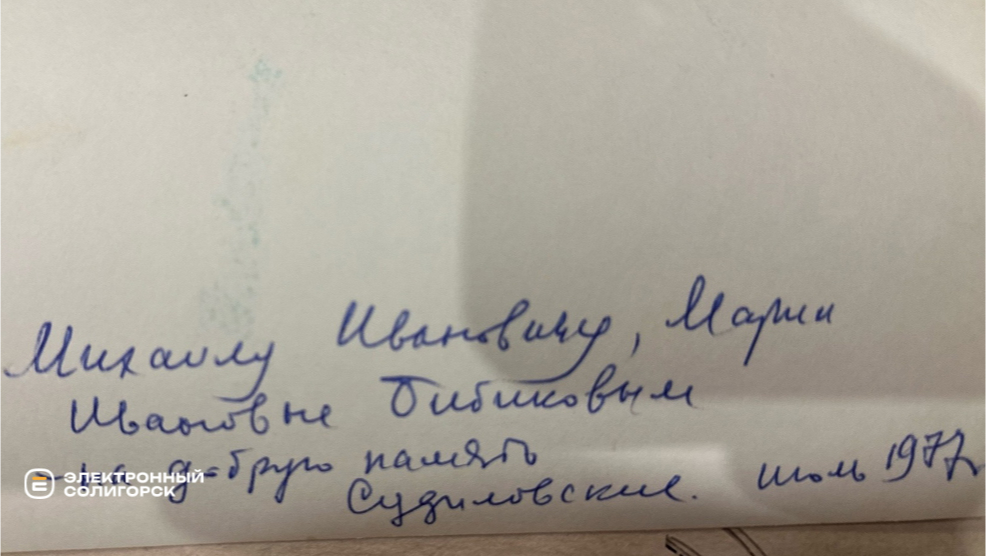 Михаилу Ивановичу, Марии
Ивановне Бибиковым
- на добрую память
Судиловские. июль 1977г
ЭЛЕКТРОННЫЙ
СОЛИГОРСК